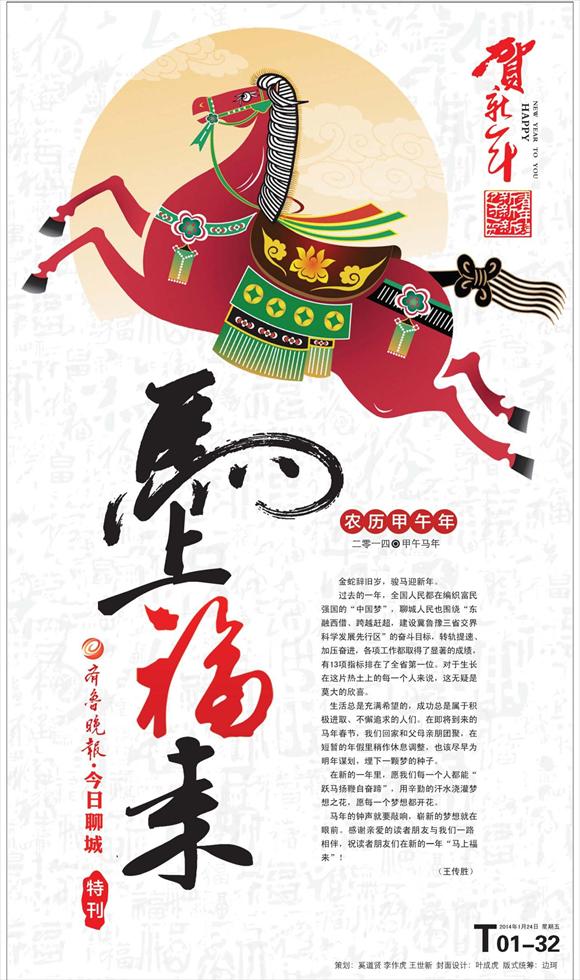 贺新年
HAPPY
NEW YEAR TO YOU
馬上福来
农历甲午年
二零一四 甲午马年
金蛇辞旧岁，骏马迎新年。
过去的一年，全国人民都在编织富民
强国的“中国梦”，聊城人民也围绕“东
融西借、跨越赶超，建设冀鲁豫三省交界
科学发展先行区”的奋斗目标，转轨提速、
加压奋进，各项工作都取得了显著的成绩，
有13项指标排在了全省第一位。对于生长
在这片热土上的每一个人来说，这无疑是
莫大的欣喜。
生活总是充满希望的，成功总是属于积
极进取、不懈追求的人们。在即将到来的
马年春节，我们回家和父母亲朋团聚，在
短暂的年假里稍作休息调整，也该尽早为
明年谋划，埋下一颗梦的种子。
在新的一年里，愿我们每一个人都能“
跃马扬鞭自奋蹄”，用辛勤的汗水浇灌梦
想之花，愿每一个梦想都开花。
马年的钟声就要敲响，崭新的梦想就在
眼前。感谢亲爱的读者朋友与我们一路
相伴，祝读者朋友们在新的一年“马上福
来”！
（王传胜）
齐鲁晚報·今日聊城
特刊
T01-32
2014年1月24日 星期五
策划：奚道贤 李作虎 王世新 封面设计：叶成虎 版式统筹：边珂